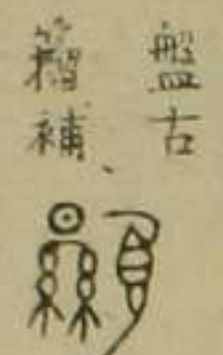 盤古
籀補
顯